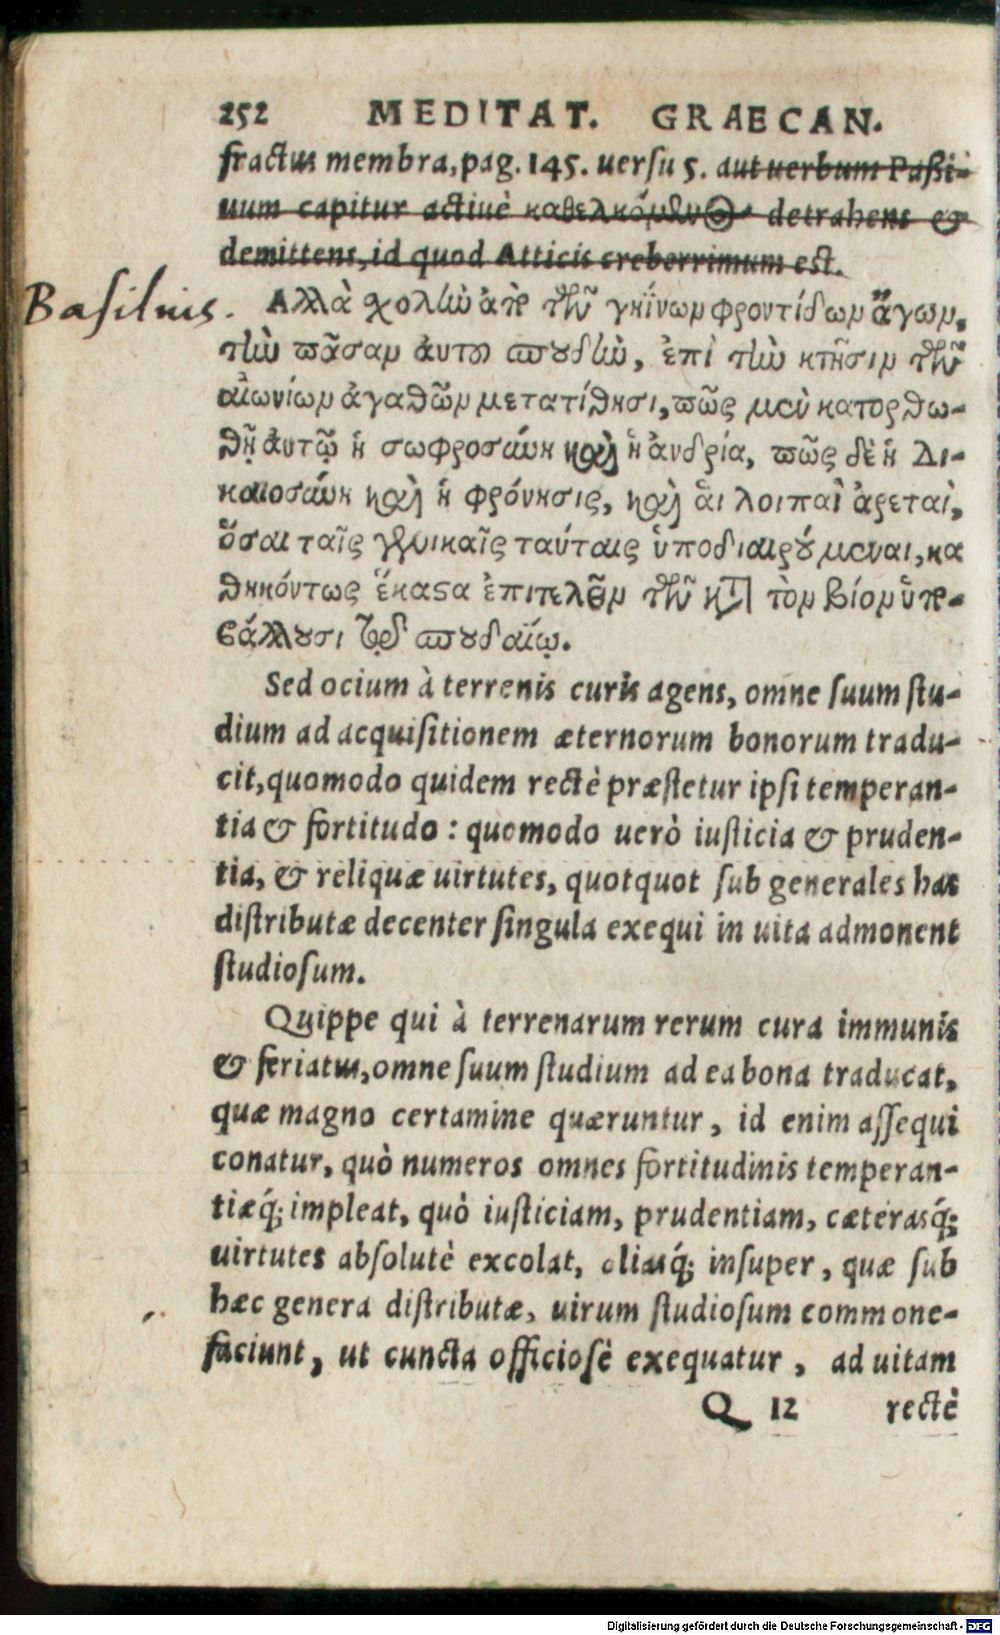 252 MEDITAT. GRAECAN.
fractus membra, pag. 145. uersu 5. aut uerbum Paßi-
uum capitur actiuè καθελκόμενος detrahens &
demittens, id quod Atticis creberrimum est.
Basilius.
Αλλὰ χολὴν ἀπὸ τῶν γηΐνων φροντίδων ἄγων,
τὴν πᾶσαν ἀυτοῦ σπουδὴν, ἐπὶ τὴν κτῆσιν τῶν
αἰωνίων ἀγαθῶν μετατίθησι, πῶς μεν κατορθω-
θῇ ἀυτῷ ἡ σωφροσύνη καὶ ἡ ἀνδρία, πῶς δὲ ἡ Δι-
καιοσύνη καὶ ἡ φρόνησις, καὶ ἁι λοιπαὶ ἀρεταὶ,
ὅσαι ταῖς γενικαῖς ταύταις ὑποδιαιρούμεναι, κα
θηκόντως ἕκαστα ἐπιτελεῖν τῶν κατὰ τὸν βίον ὑπο-
βάλλουσι τῷ σπουδαίῳ.
Sed ocium à terrenis curis agens, omne suum stu-
dium ad acquisitionem æternorum bonorum tradu-
cit, quomodo quidem rectè præstetur ipsi temperan-
tia & fortitudo : quomodo uerò iusticia & pruden-
tia, & reliquæ uirtutes, quotquot sub generales has
distributæ decenter singula exequi in uita admonent
studiosum.
Quippe qui à terrenarum rerum cura immunis
& feriatus, omne suum studium ad ea bona traducat,
quæ magno certamine quæruntur, id enim assequi
conatur, quò numeros omnes fortitudinis temperan-
tiæq́; impleat, quò iusticiam, prudentiam, cæterasq́;
uirtutes absolutè excolat, aliasq́; insuper, quæ sub
hæc genera distributæ, uirum studiosum commone-
faciunt, ut cuncta officiosè exequatur, ad uitam
Q 12 rectè
Digitalisierung gefördert durch die Deutsche Forschungsgemeinschaft - DFG